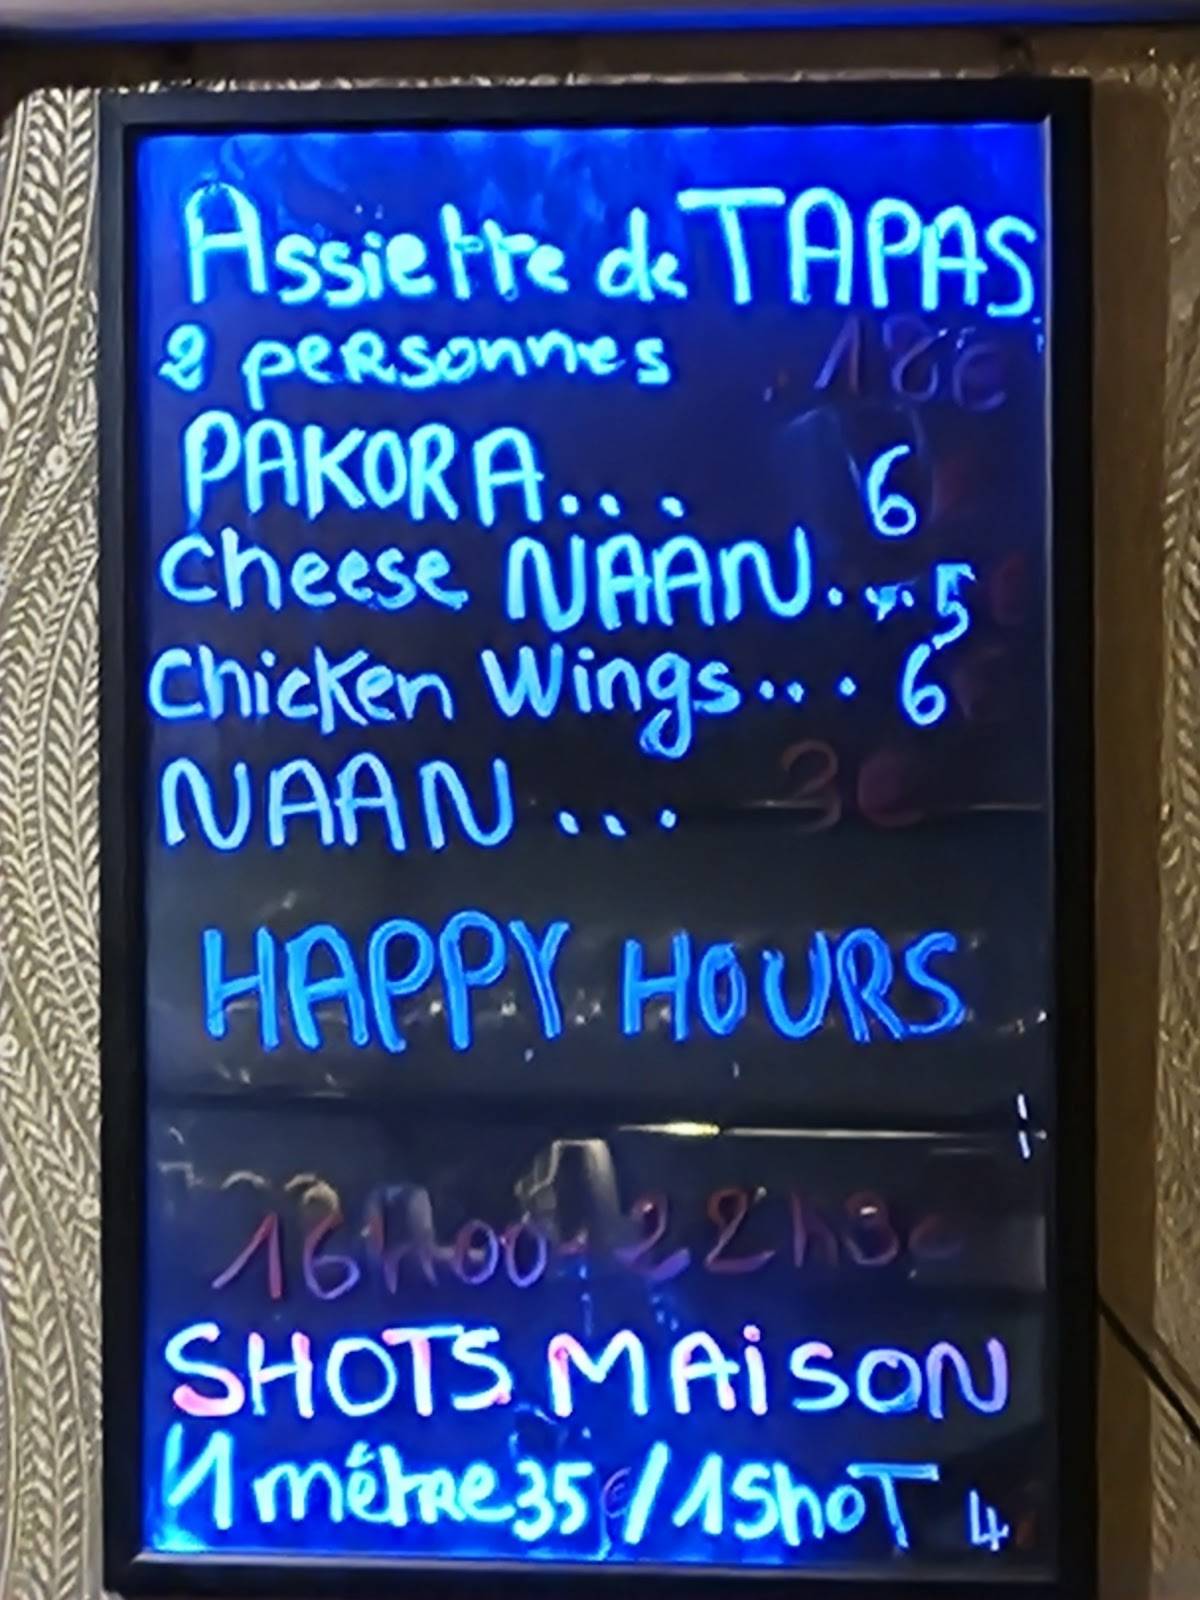 Assiette de TAPAS
2 personnes 18€
PAKORA... 6€
Cheese NAAN... 5€
Chicken Wings... 6€
NAAN... 3€
HAPPY HOURS
16H00-22h30
SHOTS MAiSON
1 métre 35€/1 ShoT 4